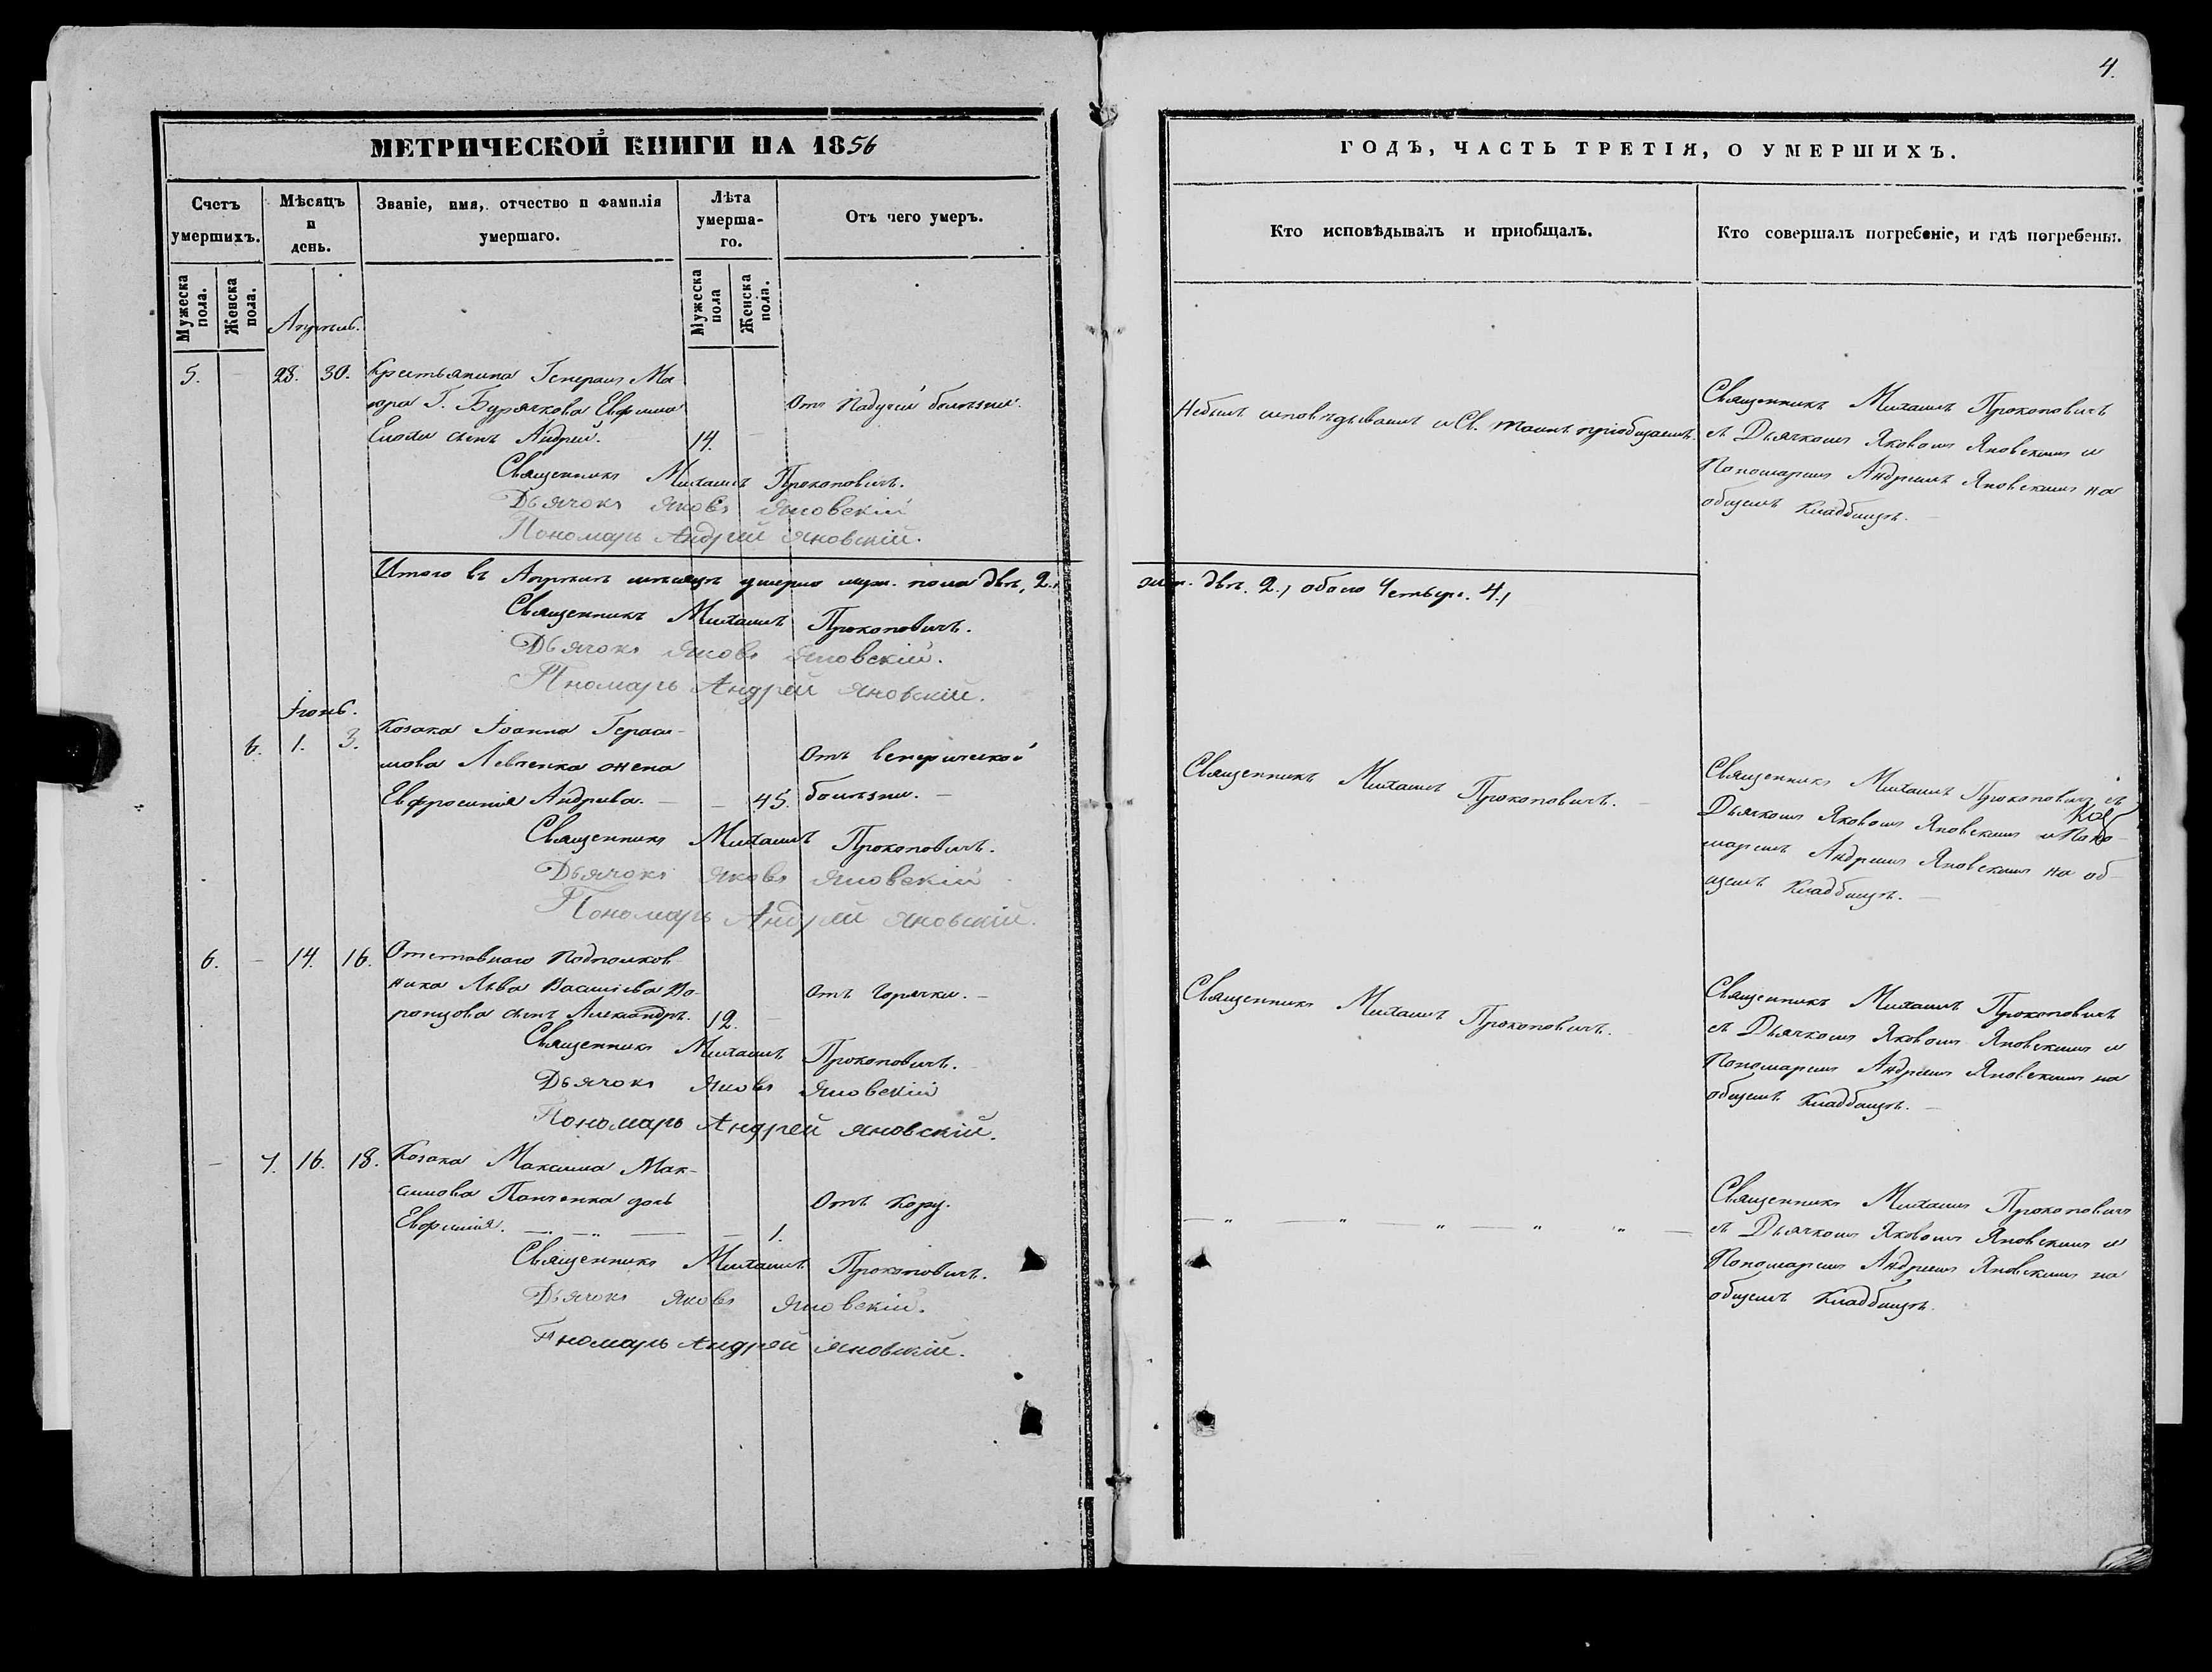 4.
МЕТРИЧЕСКОЙ КНИГИ НА 1856
ГОДЪ, ЧАСТЬ ТРЕТІЯ, О УМЕРШИХЪ.
Счетъ умершихъ.
Мѣсяцъ и день.
Званіе, имя, отчество и фамилія умершаго.
Лѣта умерша-го.
Отъ чего умеръ.
Кто исповѣдывалъ и пріобщалъ.
Кто совершалъ погребеніе, и гдѣ погребены.
Мужеска пола.
Женска пола.
Мужеска пола
Женска пола.
Апрель.
5. — 28. 30. Крестьянина Генералъ Ма
іора Г. Бурячкова Евфима
сынъ Андрей. 14.
Отъ Падучей болѣзни.
Небылъ исповѣдыванъ и Св. Таинъ пріобщаемъ.
Священникъ Михаилъ Прокоповичъ
съ Дьячкомъ Яковомъ Яновскимъ и
Пономаремъ Андреемъ Яновскимъ на
общемъ Кладбищѣ.
Священникъ Михаилъ Прокоповичъ.
Дьячокъ Яковъ Яновскій
Пономарь Андрей Яновскій.
Итого въ Апрѣлѣ мѣсяцѣ умерло муж. пола два, 2.,
жен. двѣ. 2., обоего Четыре. 4.,
Священникъ Михаилъ Прокоповичъ.
Дьячокъ Яковъ Яновскій.
Пномарь Андрей Яновскій.
Іюнь.
6. 1. 3. Козака Іоанна Гераси-
мова Левченка жена
Евфросинія Андреева. — — 45.
Отъ венерической
болѣзни. —
Священникъ Михаилъ Прокоповичъ.
Священникъ Михаилъ Прокоповичъ съ
Дьячкомъ Яковомъ Яновскимъ и Поно-
маремъ Андреемъ Яновскимъ на об-
щемъ Кладбищѣ. —
Священникъ Михаилъ Прокоповичъ.
Дьячокъ Яковъ Яновскій
Пономарь Андрей Яновскій.
6. — 14. 16. Отставнаго Подполков
ника Льва Васильева Во-
ронцова сынъ Александръ. 12.
Отъ Горячки. —
Священникъ Михаилъ Прокоповичъ.
Священникъ Михаилъ Прокоповичъ
съ Дьячкомъ Яковомъ Яновскимъ и
Пономаремъ Андреемъ Яновскимъ на
общемъ Кладбищѣ. —
Священникъ Михаилъ Прокоповичъ.
Дьячокъ Яковъ Яновскій
Пономарь Андрей Яновскій.
— 7. 16. 18. Козака Максима Мак-
симова Панченка дочь
Евфимія. — — 1.
Отъ Кору.
— „ — „ „ — „ „ —
Священникъ Михаилъ Прокоповичъ
съ Дьячкомъ Яковомъ Яновскимъ и
Пономаремъ Андреемъ Яновскимъ на
общемъ Кладбищѣ.
Священникъ Михаилъ Прокоповичъ.
Дьячокъ Яковъ Яновскій.
Пномарь Андрей Яновскій.